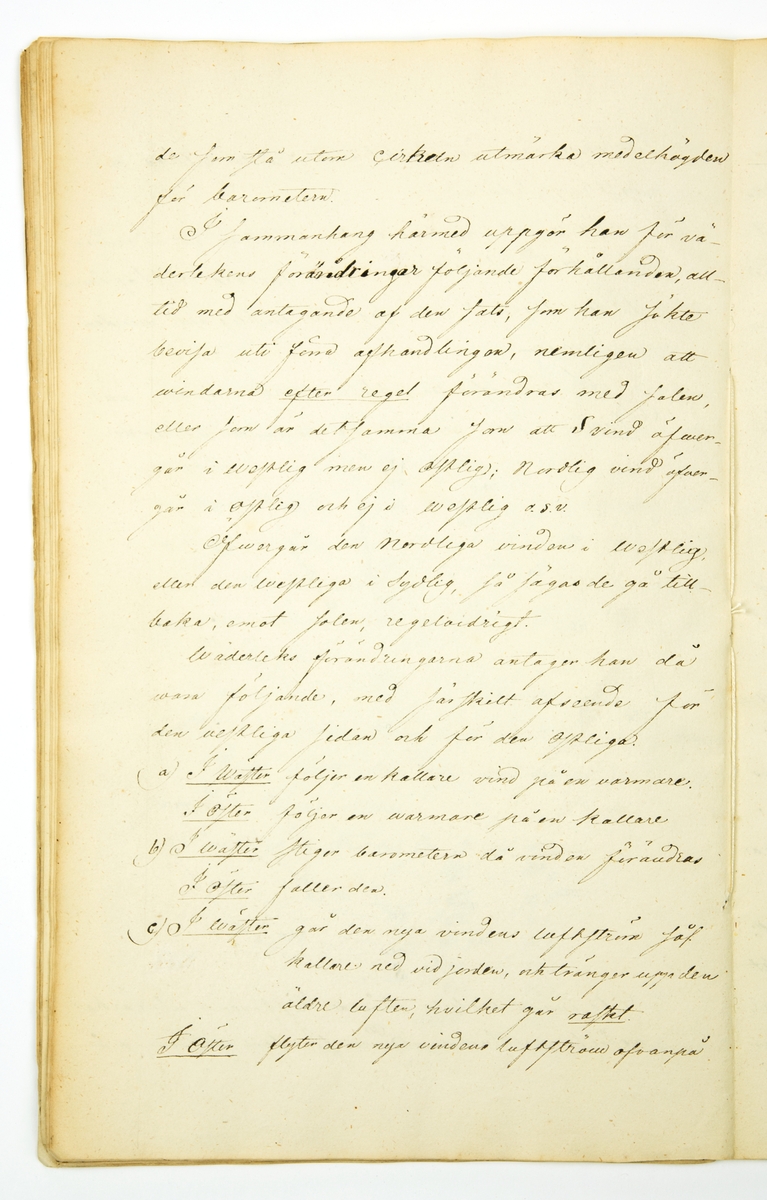 de som stå utom Cirkeln utmärka medelhögden
för barometern.
I sammanhang härmed uppgör han för vä-
derlekens förändringar följande förhållanden, all-
tid med antagande af den sats, som han sökte
bevisa uti förra afhandlingen, nemligen att
windarna efter regel förändras med solen,
eller som är detsamma som att S vind öfwer-
går i westlig men ej ostlig; Nordlig vind öfver-
går i ostlig och ej i westlig o.s.v.
Öfwergår den Nordliga vinden i westlig,
eller den westliga i sydlig, så sägas de gå till-
baka, emot solen, regelvidrigt.
Wäderleks förändringarna antager han då
wara följande, med särskilt afseende för
den vestliga sidan och för den ostliga.
a) I Wäster följer en kallare vind på en varmare.
I Öster följer en warmare på en kallare
b) I wäster stiger barometern då vinden förändras
I Öster faller den.
c) I Wäster går den nya vindens luftström såsf
kallare ned vid jorden, och tränger uppå den
äldre luften, hvilket går raskt.
I Öster flyter den nya vindens luftström ofvanpå